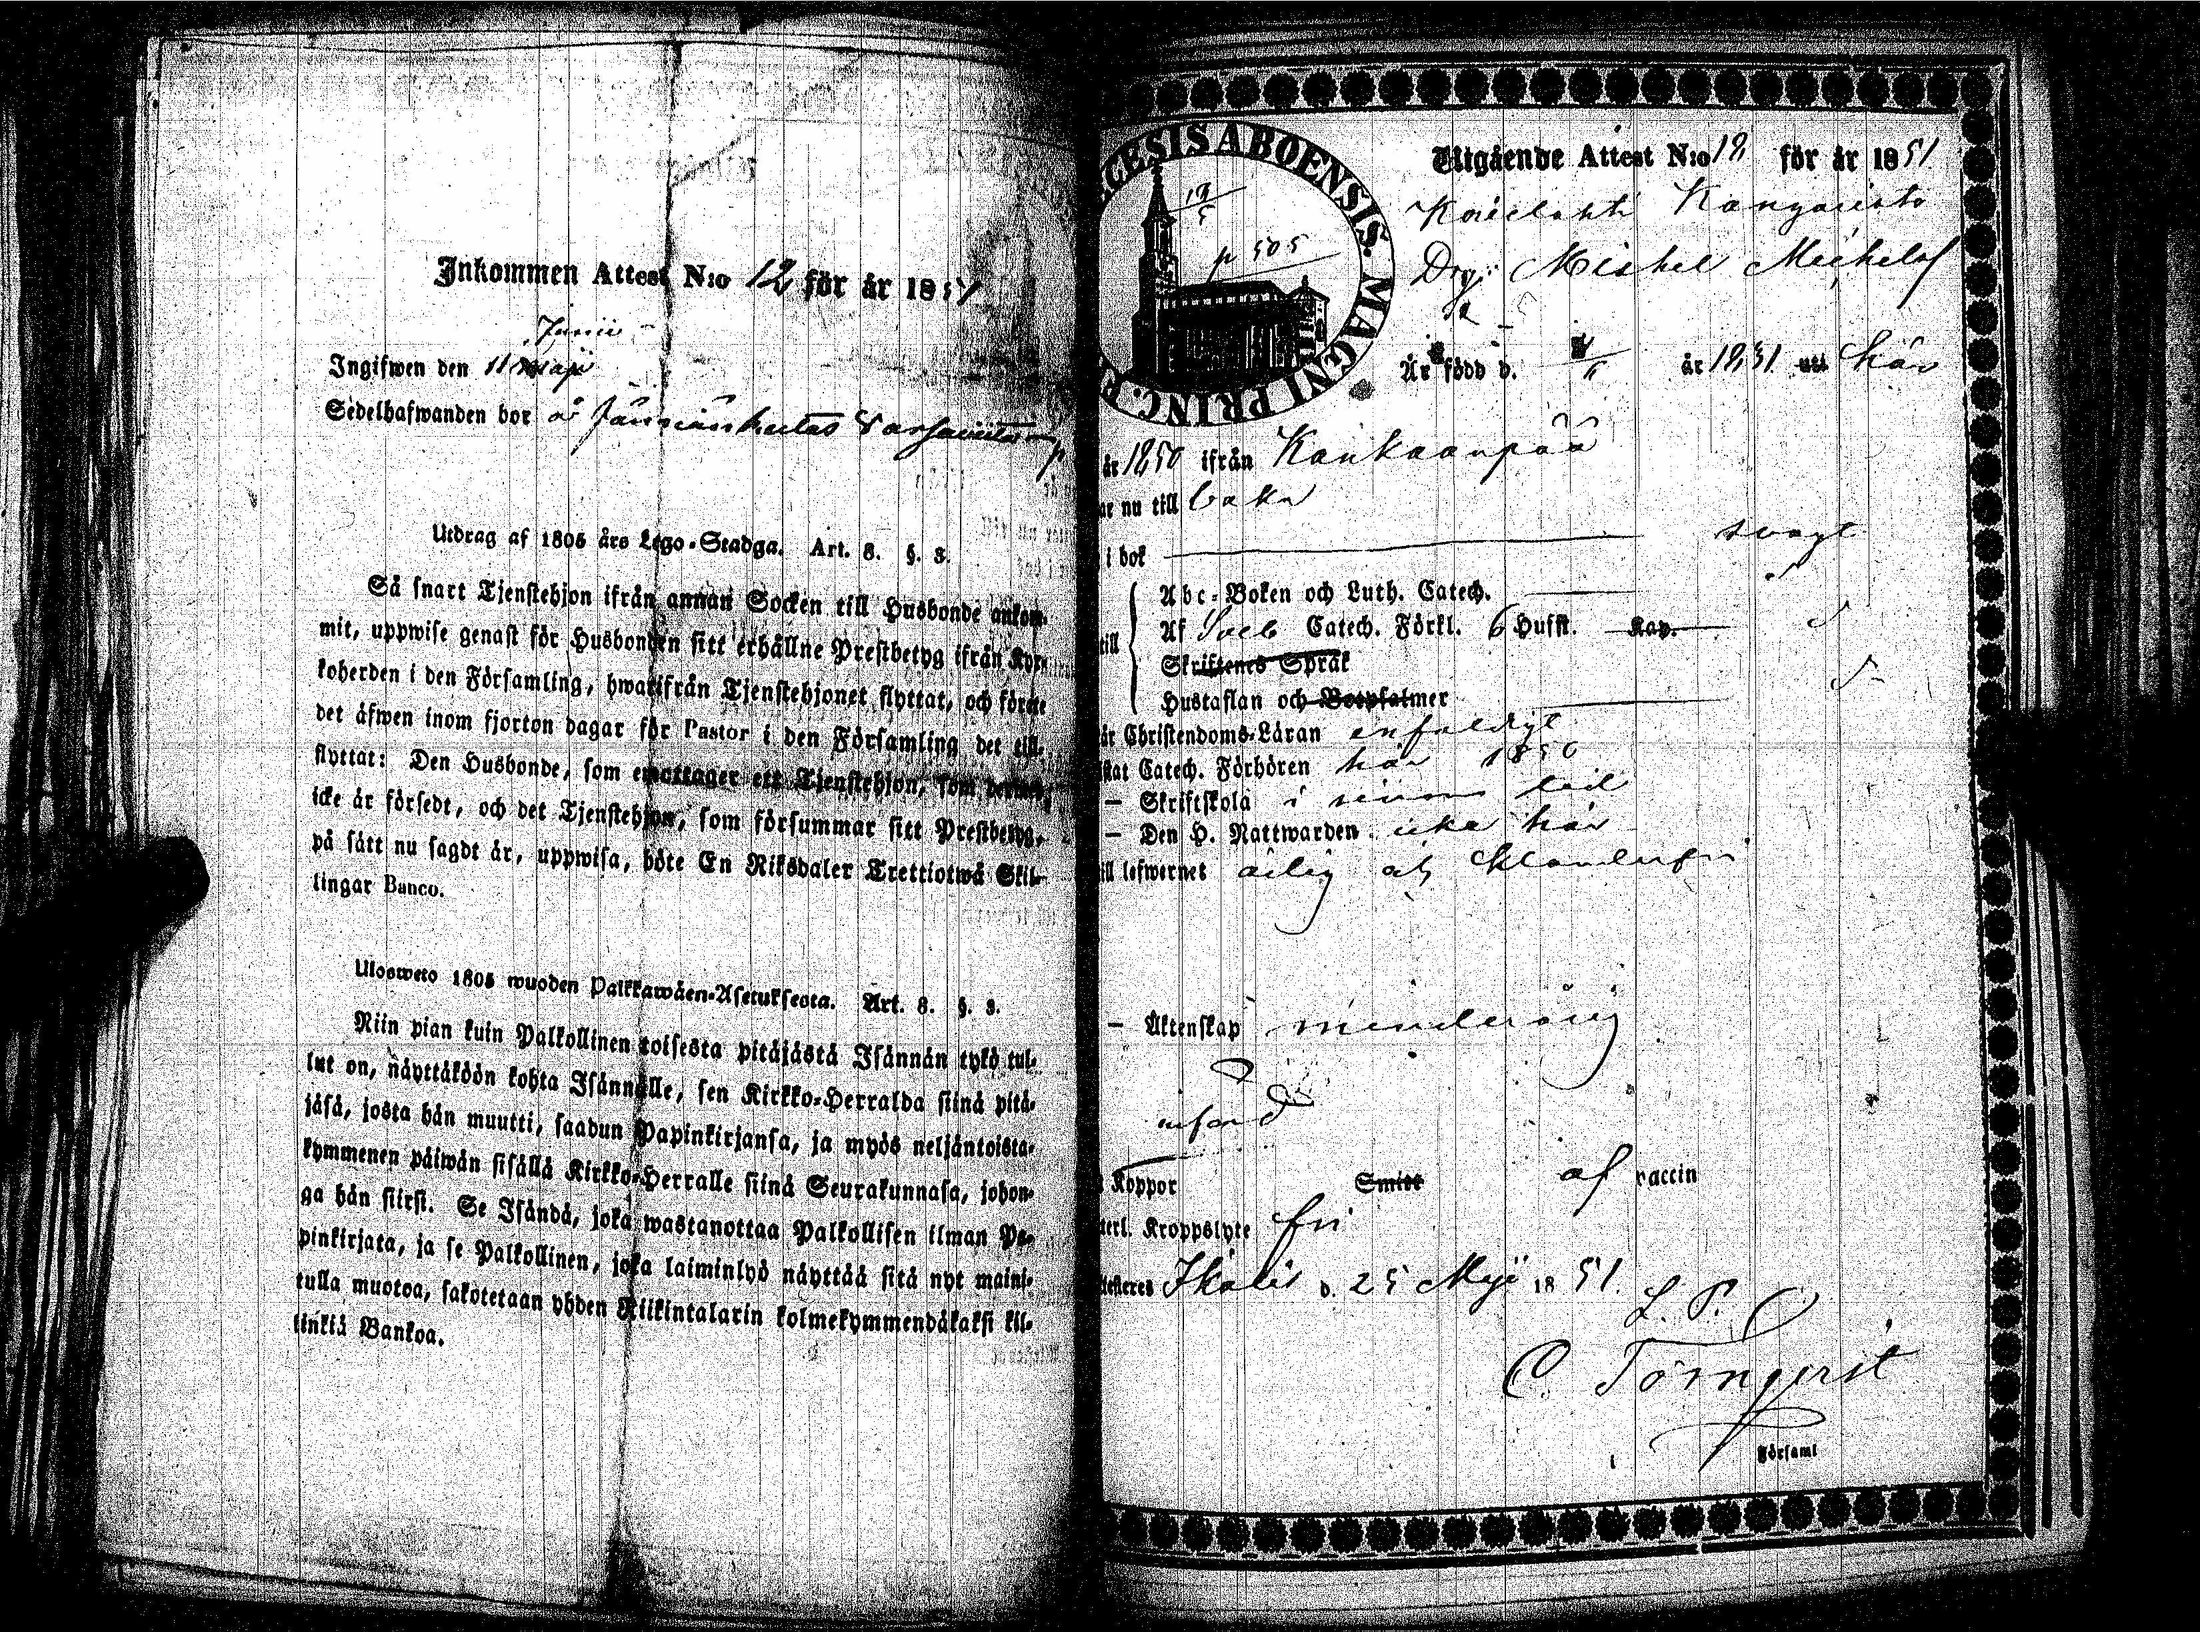 Inkommen Attest N:o 12 för år 1851
Junii
Ingifwen den 11 Maji
Sedelhafwanden bor å
Utdrag af 1805 års Lego-Stadga. Art. 8. §. 3.
Så snart Tjenstehjon ifrån annan Socken till Husbonde ankom-
mit, uppwise genast för Husbonden sitt erhållne Prestbetyg ifrån Kyr-
koherden i den Församling, hwarifrån Tjenstehjonet flyttat, och förete
det äfwen inom fjorton dagar för Pastor i den Församling det till-
flyttat: Den Husbonde, som emottager ett Tjenstehjon, som dermed
icke är försedt, och det Tjenstehjon, som försummar sitt Prestbetyg,
på sätt nu sagdt är, uppwisa, böte En Riksdaler Trettiotwå Skil-
lingar Banco.
Ulosweto 1805 wuoden Palkkawäen-Asetuksesta. Art. 8. §. 3.
Niin pian kuin Palkollinen toisesta pitäjästä Isännän tykö tul-
lut on, näyttäköön kohta Isännälle, sen Kirkko-Herralda siinä pitä-
jäsä, josta hän muutti, saadun Papinkirjansa, ja myös neljäntoista-
kymmenen päiwän sisällä Kirkko-Herralle siinä Seurakunnasa, johon-
ga hän siirsi. Se Isändä, joka wastanottaa Palkollisen ilman Pa-
pinkirjata, ja se Palkollinen, joka laiminlyö näyttää sitä nyt maini-
tulla muotoa, sakotetaan yhden Riikintalarin kolmekymmendäkaksi kil-
linkiä Bankoa.
CESIS ABOENSIS. MAGNI PRINC. F
19/5
p 505
Utgående Attest N:o 12 för år 1851
Dr Michel Michelsf
Är född d. år 1831 uti här
år 1850 ifrån Kankaanpää
ar nu till baka
i bok svagt
till
Abc-Boken och Luth. Catech.
Af Sveb Catech. Förkl. 6 Hufst. Kap.
Skriftenes Språk
Hustaflan och Botpsalmer
är Christendoms-Läran enfaldigt
stat Catech. Förhören här 1850
— Skriftskola i sinom tid
— Den H. Nattwarden icke här
till lefwernet ärlig och klanderfri
— Äktenskap minderårig
införd
Koppor Smitt af vaccin
terl. Kroppslyte fri
testeres Ikalis d. 25 Maji 1851.
L. P.
C. Törnqvist
i Församl